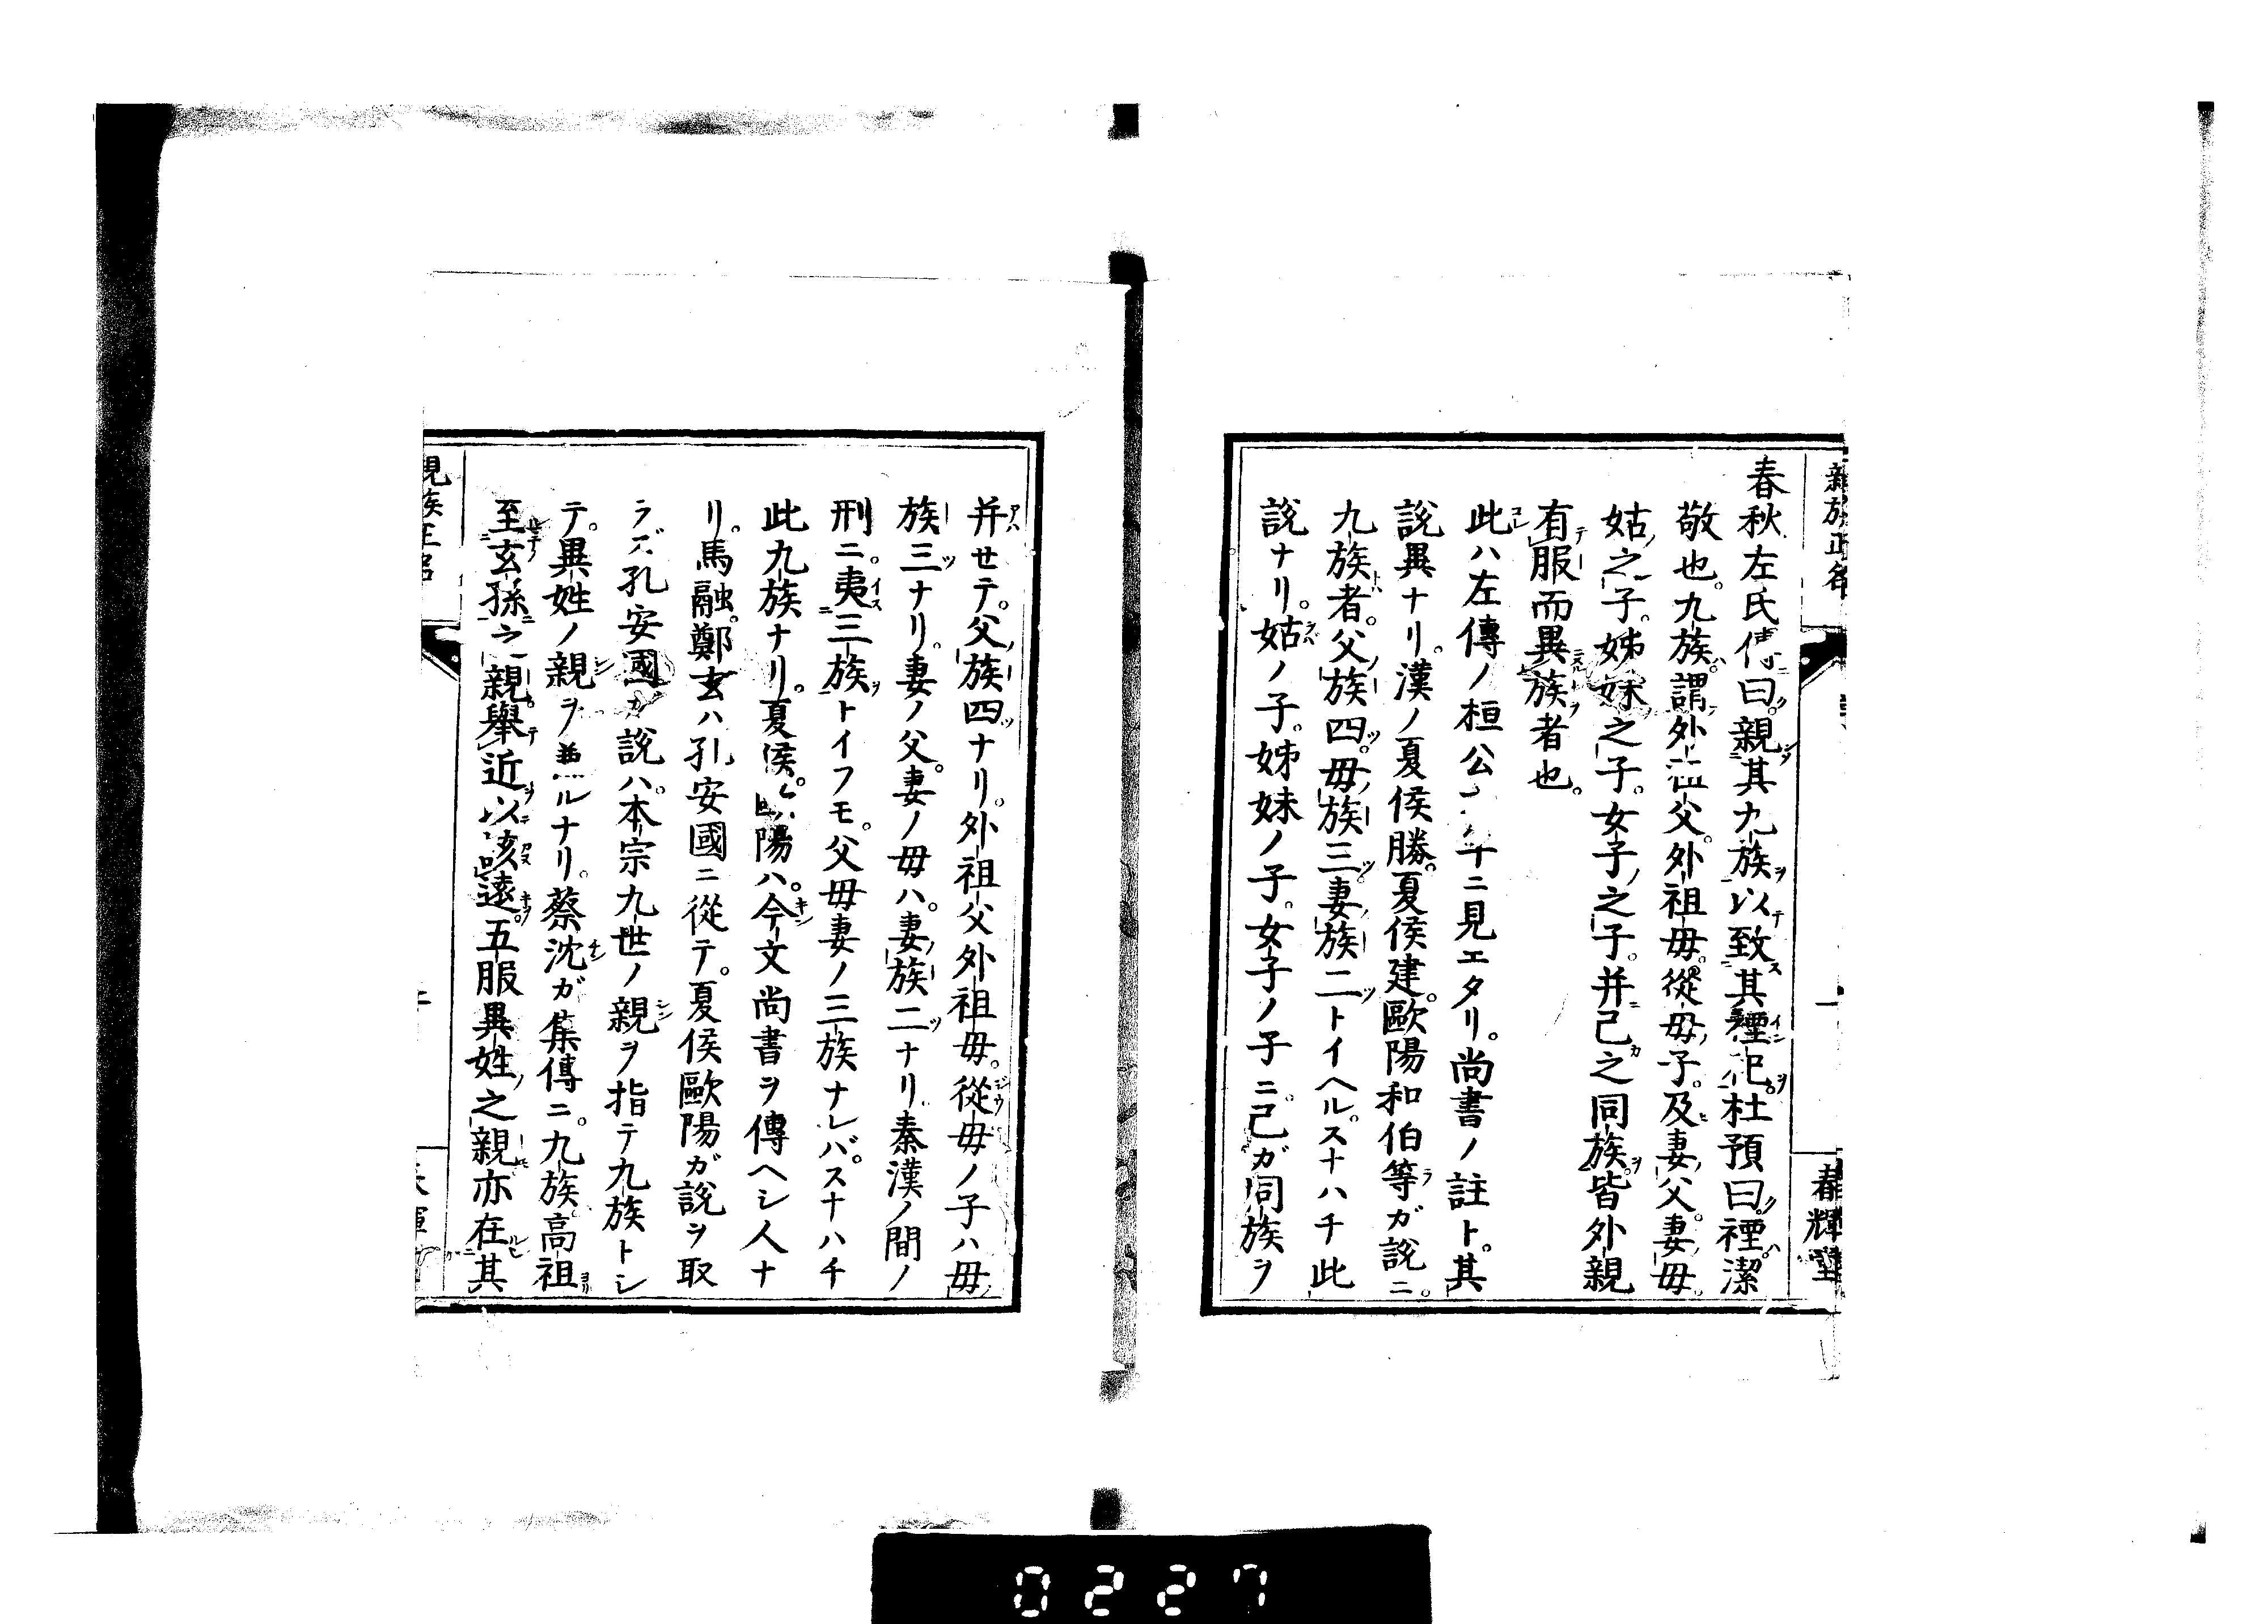 親族正名
春輝堂
春秋左氏傳曰。親其九族以致其禋祀。杜預曰。禋潔
敬也。九族。謂外祖父。外祖母。從母子。及妻父。妻母。
姑之子。姊妹之子。女子之子。并己之同族。皆外親
有服而異族者也。
此ハ左傳ノ桓公六年ニ見エタリ。尚書ノ註ト。其
說異ナリ。漢ノ夏侯勝。夏侯建。歐陽和伯等ガ說ニ。
九族者。父族四。母族三。妻族二トイヘル。スナハチ此
說ナリ。姑ノ子。姊妹ノ子。女子ノ子ニ。己ガ同族ヲ
并セテ。父族四ナリ。外祖父外祖母。從母ノ子ハ母
族三ナリ。妻ノ父。妻ノ母ハ。妻族二ナリ。秦漢ノ間ノ
刑ニ。夷三族トイフモ。父母妻ノ三族ナレバ。スナハチ
此九族ナリ。夏侯。歐陽ハ。今文尚書ヲ傳ヘシ人ナ
リ。馬融。鄭玄ハ孔安國ニ從テ。夏侯歐陽ガ說ヲ取
ラズ。孔安國ガ說ハ。本宗九世ノ親ヲ指テ九族トシ
テ。異姓ノ親ヲ兼ルナリ。蔡沈ガ集傳ニ。九族。高祖
至玄孫之親。舉近以該遠。五服異姓之親亦在其
親族正名
0227